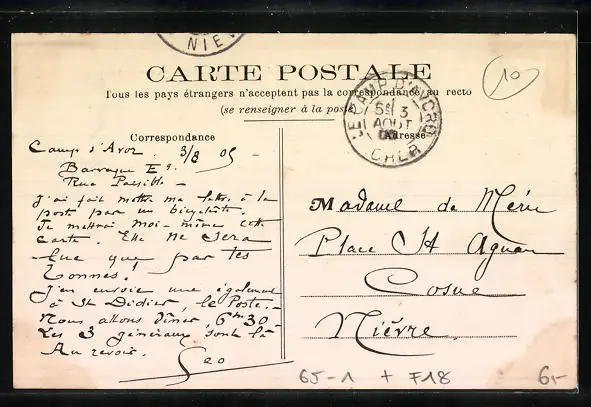 NIEV
CARTE POSTALE
Tous les pays étrangers n'acceptent pas la correspondance au recto
(se renseigner à la poste
LE CAMP D'AVORD
5E 3
AOUT
CHER
10
Correspondance
Adresse
Camp d'Avor. 3/8 05 -
Baraque E1.
Rue
J'ai fait mettre ma lettre à la
poste par un bicycliste.
Je mettrai moi-même cette
carte. Elle ne sera
lue que par les
J'en envoie une également
à St Didier, le Poste. -
Nous allons dîner, 6h 30
Les 3 généraux sont là
Au revoir.
Geo
Madame de Méru
Place St Agnan
Cosne
Nièvre.
65-1 + F18
6,-